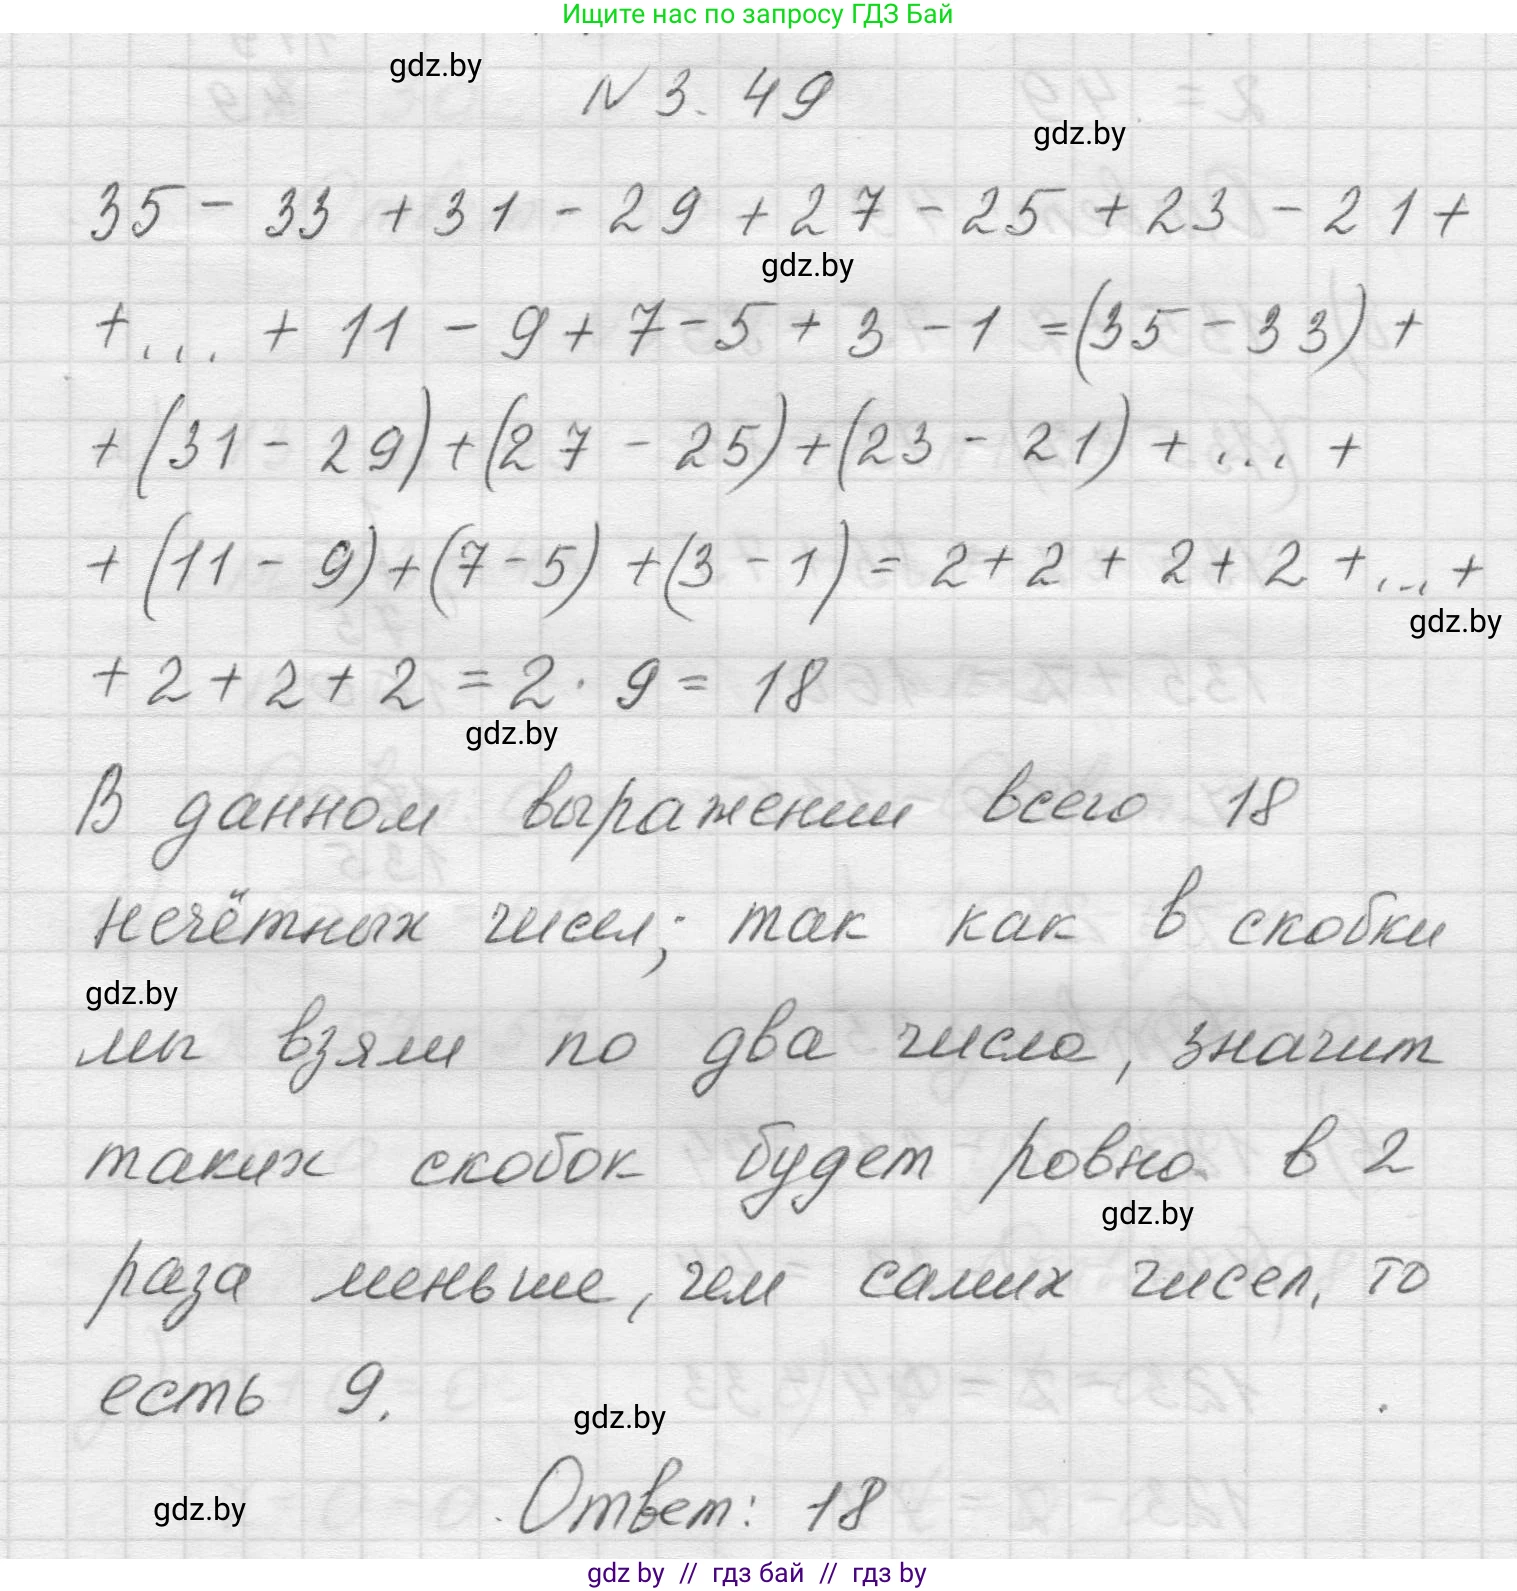 Ищите нас по запросу ГДЗ Бай
gdz.by
N 3. 49
gdz.by
35 - 33 + 31 - 29 + 27 - 25 + 23 - 21 +
gdz.by
+ ... + 11 - 9 + 7 - 5 + 3 - 1 = (35 - 33) +
+ (31 - 29) + (27 - 25) + (23 - 21) + ... +
+ (11 - 9) + (7 - 5) + (3 - 1) = 2 + 2 + 2 + 2 + ... +
gdz.by
+ 2 + 2 + 2 = 2 · 9 = 18
gdz.by
В данном выражении всего 18
нечётных чисел; так как в скобки
gdz.by
мы взяли по два числа, значит
таких скобок будет ровно в 2
gdz.by
раза меньше, чем самих чисел, то
есть 9.
gdz.by
Ответ: 18
gdz.by
gdz by // гдз бай // гдз by